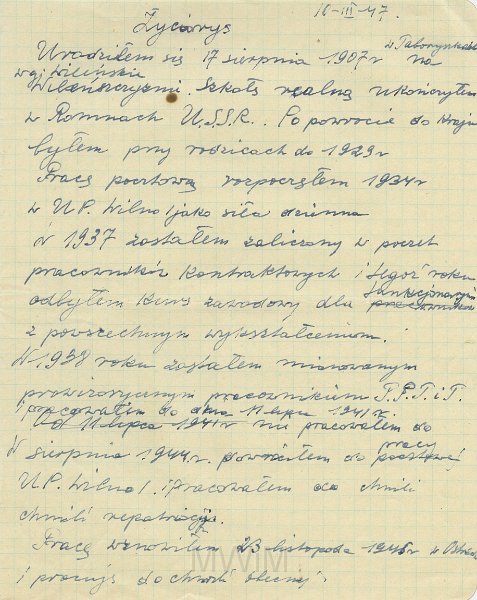 10-III-47.
Życiorys
w Taboryszkach
Urodziłem się 17 sierpnia 1907r na
woj. Wileńskie
Wileńszczyźnie. Szkołę realną ukończyłem
w Romnach U.S.S.R. Po powrocie do kraju
byłem przy rodzicach do 1929r
Pracę pocztową rozpocząłem 1934r
w U.P. Wilno 1 jako siła dzienna
W 1937 zostałem zaliczony w poczet
pracowników kontraktowych i tegoż roku
funkcjonariuszy
odbyłem kurs zawodowy dla pracowników
z powszechnym wykształceniem.
W 1938 roku zostałem mianowanym
prowizorycznym pracownikiem P.P.T. i T.
i pracowałem do dnia 11 lipca 1941 r.
Od 11 lipca 1941r nie pracowałem do
pracy
W sierpnia 1944.r. powróciłem do pocztowej
U.P. Wilno 1. i pracowałem do chwili
chwili repatriacji.
Pracę wznowiłem 23 listopada 1945r w
i pracuję do chwili obecnej.
MWiM